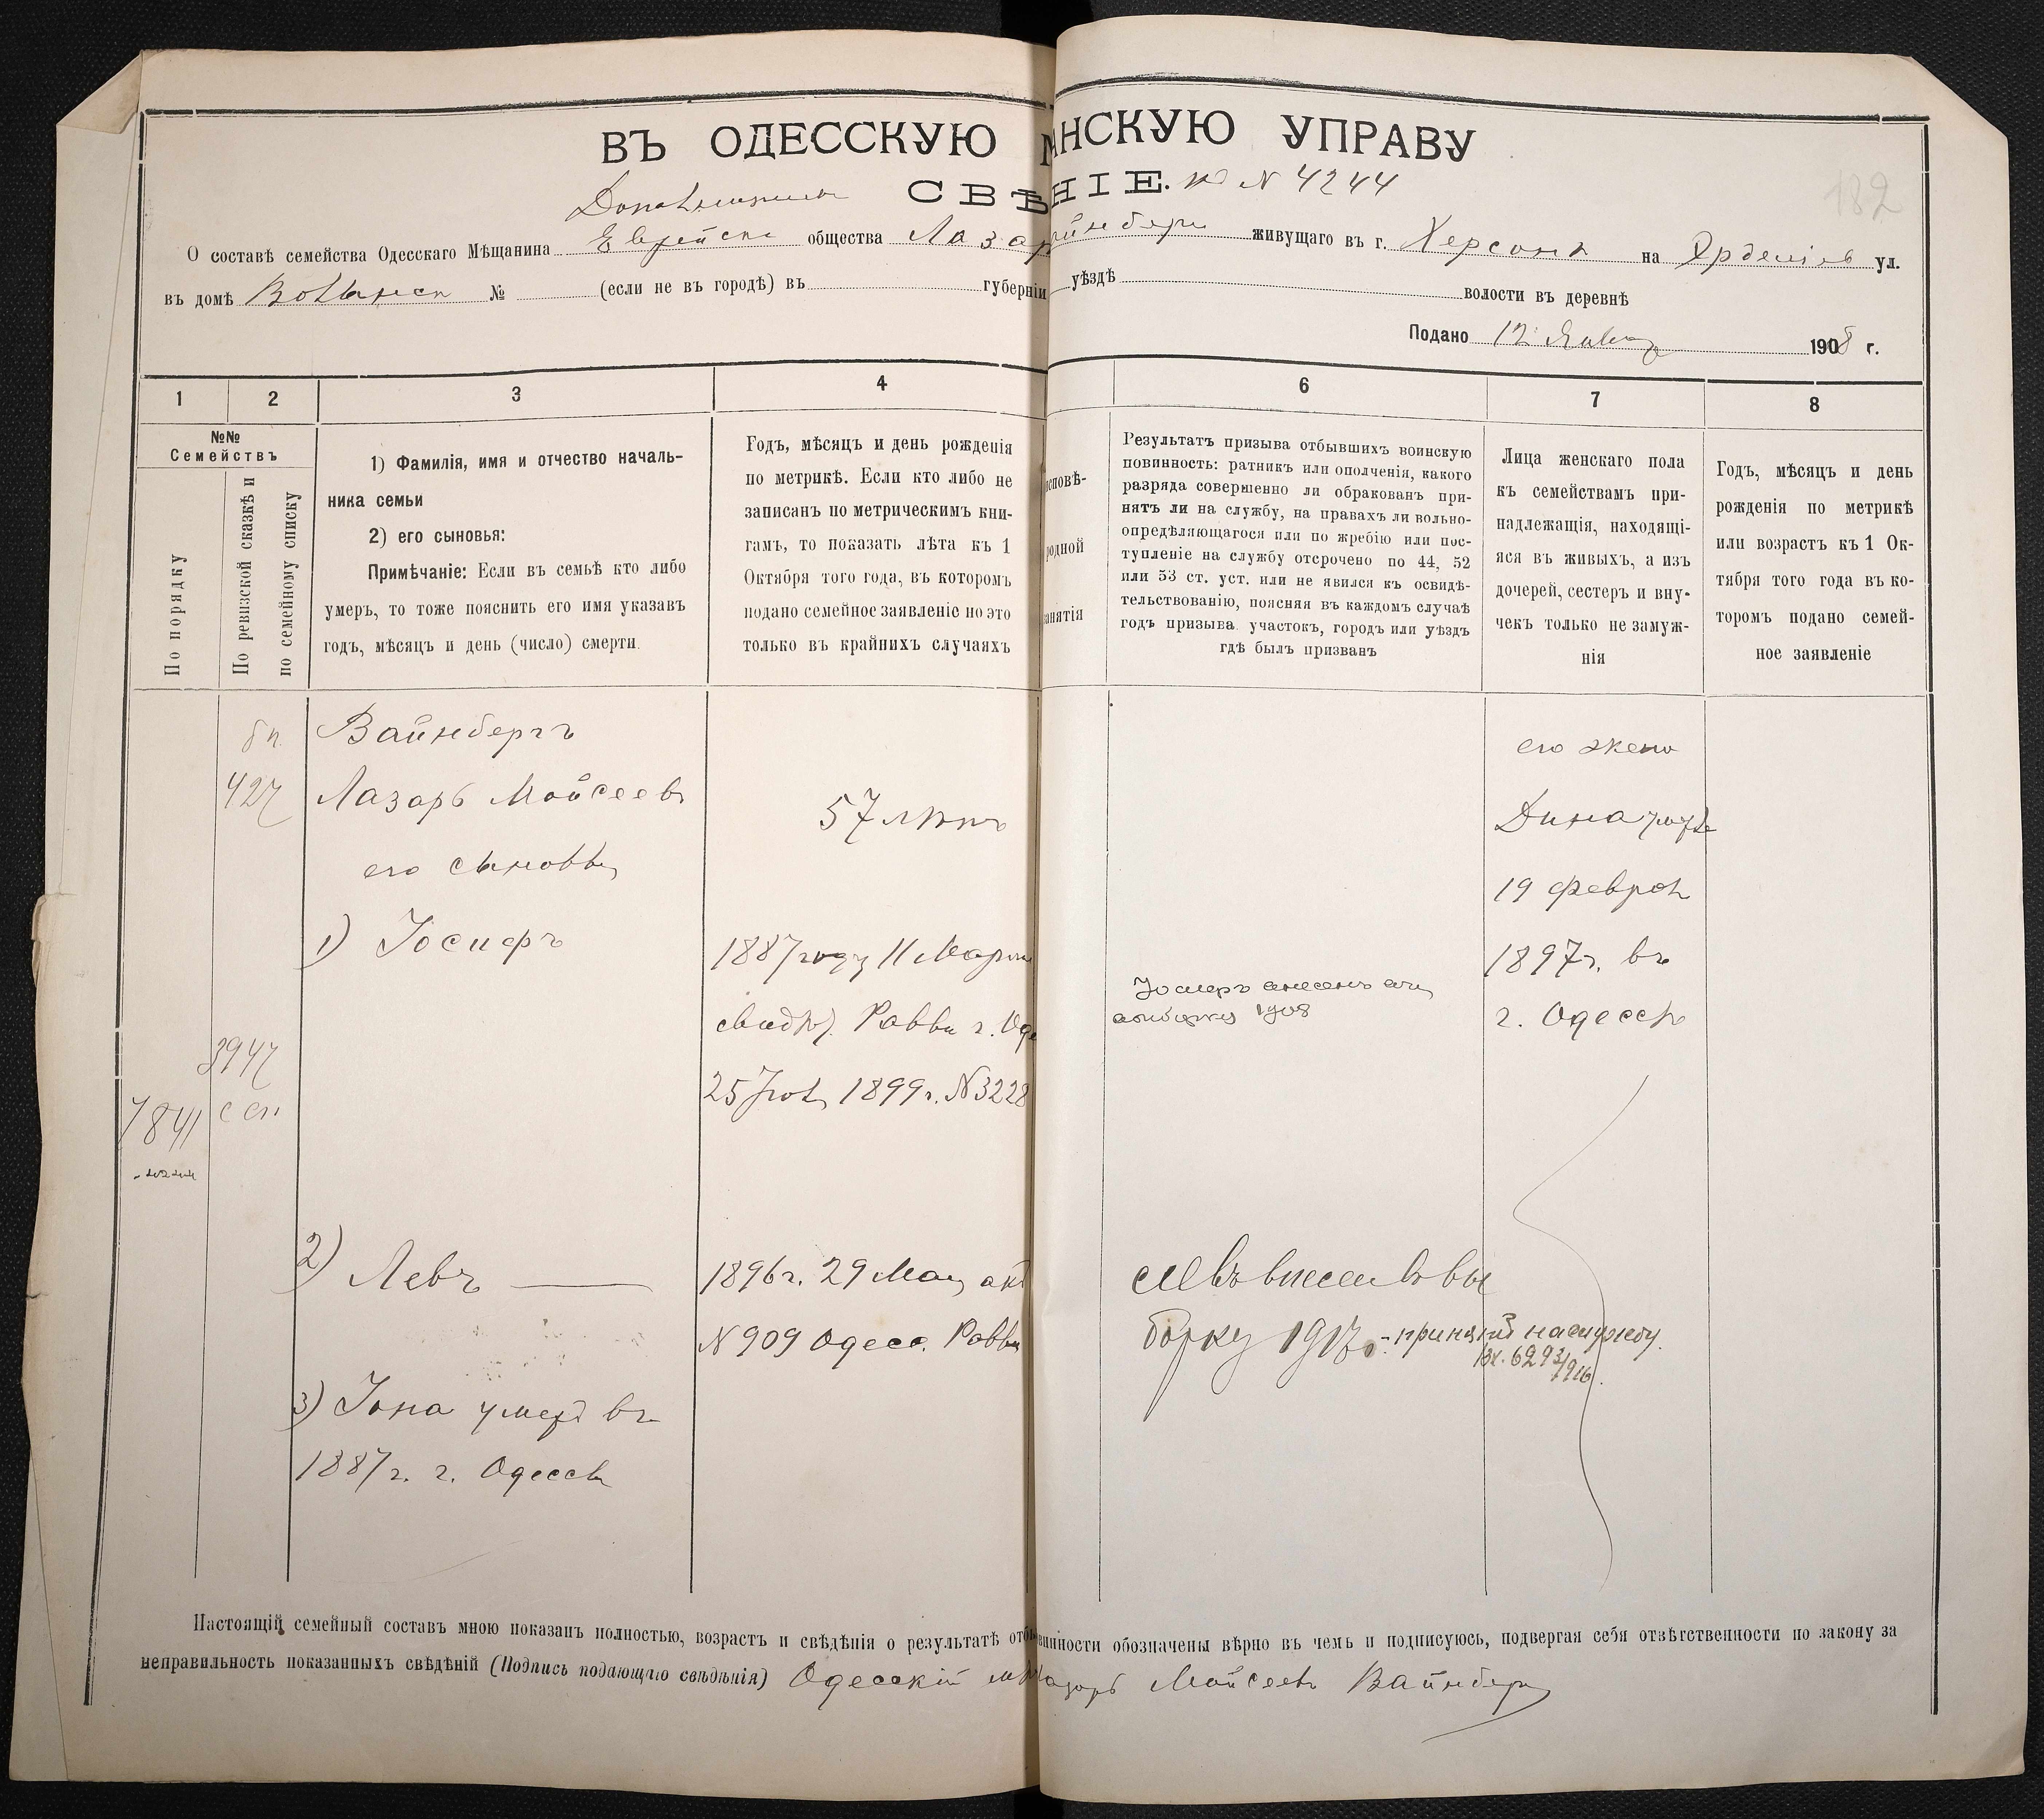 ВЪ ОДЕССКУЮ АНСКУЮ УПРАВУ
СВѢНІЕ. № 4244
182
О составѣ семейства Одесскаго Мѣщанина Еврейск общества Лазар йнберг живущаго въ г. Херсонѣ на ул.
въ домѣ № (если не въ городѣ) въ губерніи уѣздѣ волости въ деревнѣ
Подано 12 Январ 1908 г.
1 2 3 4 6 7 8
№№
Семействъ
По порядку
По ревизской сказкѣ и
по семейному списку
1) Фамилія, имя и отчество началь-
ника семьи
2) его сыновья:
Примѣчаніе: Если въ семьѣ кто либо
умеръ, то тоже пояснить его имя указавъ
годъ, мѣсяцъ и день (число) смерти.
Годъ, мѣсяцъ и день рожденія
по метрикѣ. Если кто либо не
записанъ по метрическимъ кни-
гамъ, то показать лѣта къ 1
Октября того года, въ которомъ
подано семейное заявленіе но это
только въ крайнихъ случаяхъ
исповѣ-
родной
занятія
Результатъ призыва отбывшихъ воинскую
повинность: ратникъ или ополченія, какого
разряда совершенно ли обракованъ при-
нятъ ли на службу, на правахъ ли вольно-
опредѣляющагося или по жребію или пос-
тупленіе на службу отсрочено по 44, 52
или 53 ст. уст. или не явился къ освидѣ-
тельствованію, поясняя въ каждомъ случаѣ
годъ призыва участокъ, городъ или уѣздъ
гдѣ былъ призванъ
Лица женскаго пола
къ семействамъ при-
надлежащія, находящі-
яся въ живыхъ, а изъ
дочерей, сестеръ и вну-
чекъ только не замуж-
нія
Годъ, мѣсяцъ и день
рожденія по метрикѣ
или возрастъ къ 1 Ок-
тября того года въ ко-
торомъ подано семей-
ное заявленіе
427
Вайнбергъ
Лазарь Мойсеевъ
его сыновья
57 лѣтъ
1) Іосифъ
1887 году 11 Марта
свидѣт. Равви г. Оде
25 Іюл 1899 г. № 3228
Іосифъ внесенъ
1908
его жена
Дина умер
19 феврал
1897 г. въ
г. Одессѣ
3947
7841
2) Левъ
1896 г. 29 Мая акт
№ 909 Одесс. Равви
Левъ внесен въ вы
борку 1917 г. - принятъ на службу.
Вх. 6293/916.
3) Іона умер въ
1887 г. г. Одесса
Настоящій семейный составъ мною показанъ полностью, возрастъ и свѣдѣнія о результатѣ отб винности обозначены вѣрно въ чемъ и подписуюсь, подвергая себя отвѣтственности по закону за
неправильность показанныхъ свѣдѣній (Подпись подающаго свѣдѣнія) Одесскій мѣ Лазарь Мойсеевъ Вайнберг